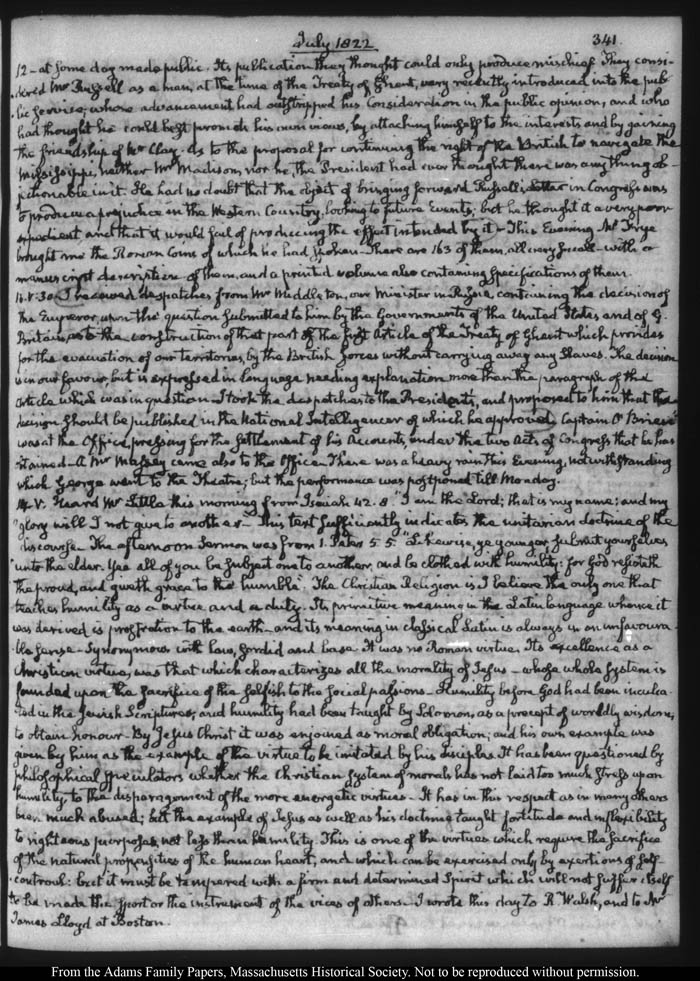 July 1822
341
12 - at some day made public. Its publication they thought could only produce mischief. They consi-
dered Mr Russell as a man, at the time of the Treaty of Ghent, very recently introduced into the pub-
lic service, whose advancement had outstripped his consideration in the public opinion, and who
had thought he could best promote his own views, by attaching himself to the interests and by gaining
the friendship of Mr Clay. As to the proposal for continuing the right of the British to navigate the
Mississippi, neither Mr Madison, nor he, the President had ever thought there was any thing ob-
jectionable in it. He had no doubt that the object of bringing forward Russell's Letter in Congress was
to produce a prejudice in the Western Country, looking to future Events; but he thought it a very poor
expedient and that it would fail of producing the effect intended by it - This Evening Mr Frye
brought me the Roman Coins of which he had spoken - There are 163 of them, all very small - with a
manuscript description of them, and a printed volume also containing specifications of them.
I received despatches from Mr Middleton, our Minister in Russia, containing the decision of
the Emperor, upon the question submitted to him by the Governments of the United States and of G.
Britain, as to the construction of that part of the first Article of the Treaty of Ghent which provides
for the evacuation of our territories, by the British forces without carrying away any Slaves. The decision
is in our favour, but is expressed in language needing explanation more than the paragraph of the
Article which was in question. I took the despatches to the President's, and proposed to him that the
decision should be published in the National Intelligencer of which he approved. Captain O'Brien
was at the Office, pressing for the settlement of his Accounts, under the two Acts of Congress that he has
obtained - A Mr Massey came also to the Office. There was a heavy rain this Evening, notwithstanding
which George went to the Theatre; but the performance was postponed till Monday.
14. V. Heard Mr Little this morning from Isaiah 42. 8 "I am the Lord; that is my name; and my
"glory will I not give to another - This text sufficiently indicates the unitarian doctrine of the
discourse - The afternoon Sermon was from 1. Peter 5. 5. "Likewise, ye younger, submit yourselves
"unto the elder. Yea all of you be subject one to another, and be clothed with humility: for God resisteth
the proud, and giveth grace to the humble". The Christian Religion is I believe the only one that
teaches humility as a virtue and a duty. Its primitive meaning in the Latin language whence it
was derived is prostration to the earth - and its meaning in classical Latin is always in an unfavoura-
ble sense - Synonymous with low, sordid and base. It was no Roman virtue. Its excellence as a
Christian virtue, was that which characterizes all the morality of Jesus - whose whole system is
founded upon the sacrifice of the selfish to the social passions - Humility before God had been inculca-
ted in the Jewish Scriptures, and humility had been taught by Solomon, as a precept of worldly wisdom,
to obtain honour - By Jesus Christ it was enjoined as moral obligation; and his own example was
given by him as the example of the virtue to be imitated by his disciples. It has been questioned by
philosophical speculators whether the Christian system of morals has not laid too much stress upon
humility, to the disparagement of the more energetic virtues - It has in this respect as in many others
been much abused; but the example of Jesus as well as his doctrine taught fortitude and inflexibility
to righteous purposes, not less than humility. This is one of the virtues which require the sacrifice
of the natural propensities of the human heart, and which can be exercised only by exertions of self-
controul: but it must be tempered with a firm and determined Spirit which will not suffer itself
to be made the sport or the instrument of the vices of others - I wrote this day to R. Walsh, and to Mr
James Lloyd at Boston.
From the Adams Family Papers, Massachusetts Historical Society. Not to be reproduced without permission.